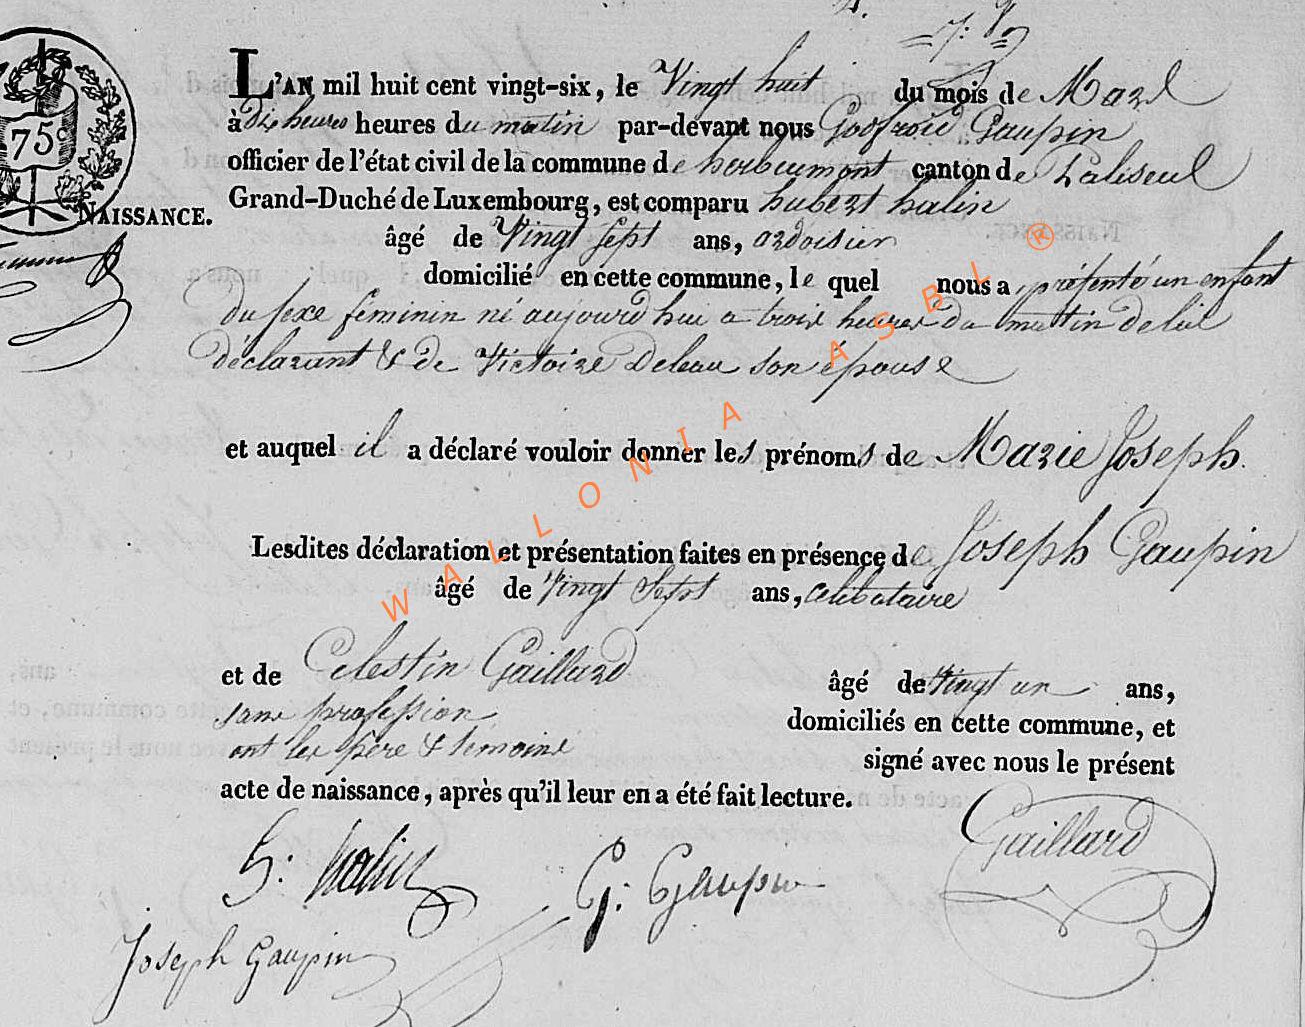 75c
NAISSANCE.
L'AN mil huit cent vingt-six, le Vingt huit du mois de Mars
à dix heures heures du matin par-devant nous Godfroid Gaupin
officier de l'état civil de la commune de herbeumont canton de Paliseul
Grand-Duché de Luxembourg, est comparu hubert halin
âgé de Vingt sept ans, ardoisier
domicilié en cette commune, le quel nous a présenté un enfant
du sexe féminin né aujourd hui a trois heures du mattin de lui
déclarant & de Victoire Deleau son épouse
et auquel il a déclaré vouloir donner les prénoms de Marie Joseph.
Lesdites déclaration et présentation faites en présence de Joseph Gaupin
âgé de Vingt Sept ans, celibataire
et de Celestin Gaillard âgé de Vingt un ans,
sans profession domiciliés en cette commune, et
ont les père & temoins signé avec nous le présent
acte de naissance, après qu'il leur en a été fait lecture.
h: halin G: Gaupin Gaillard
Joseph Gaupin
WALLONIA ASBL ®